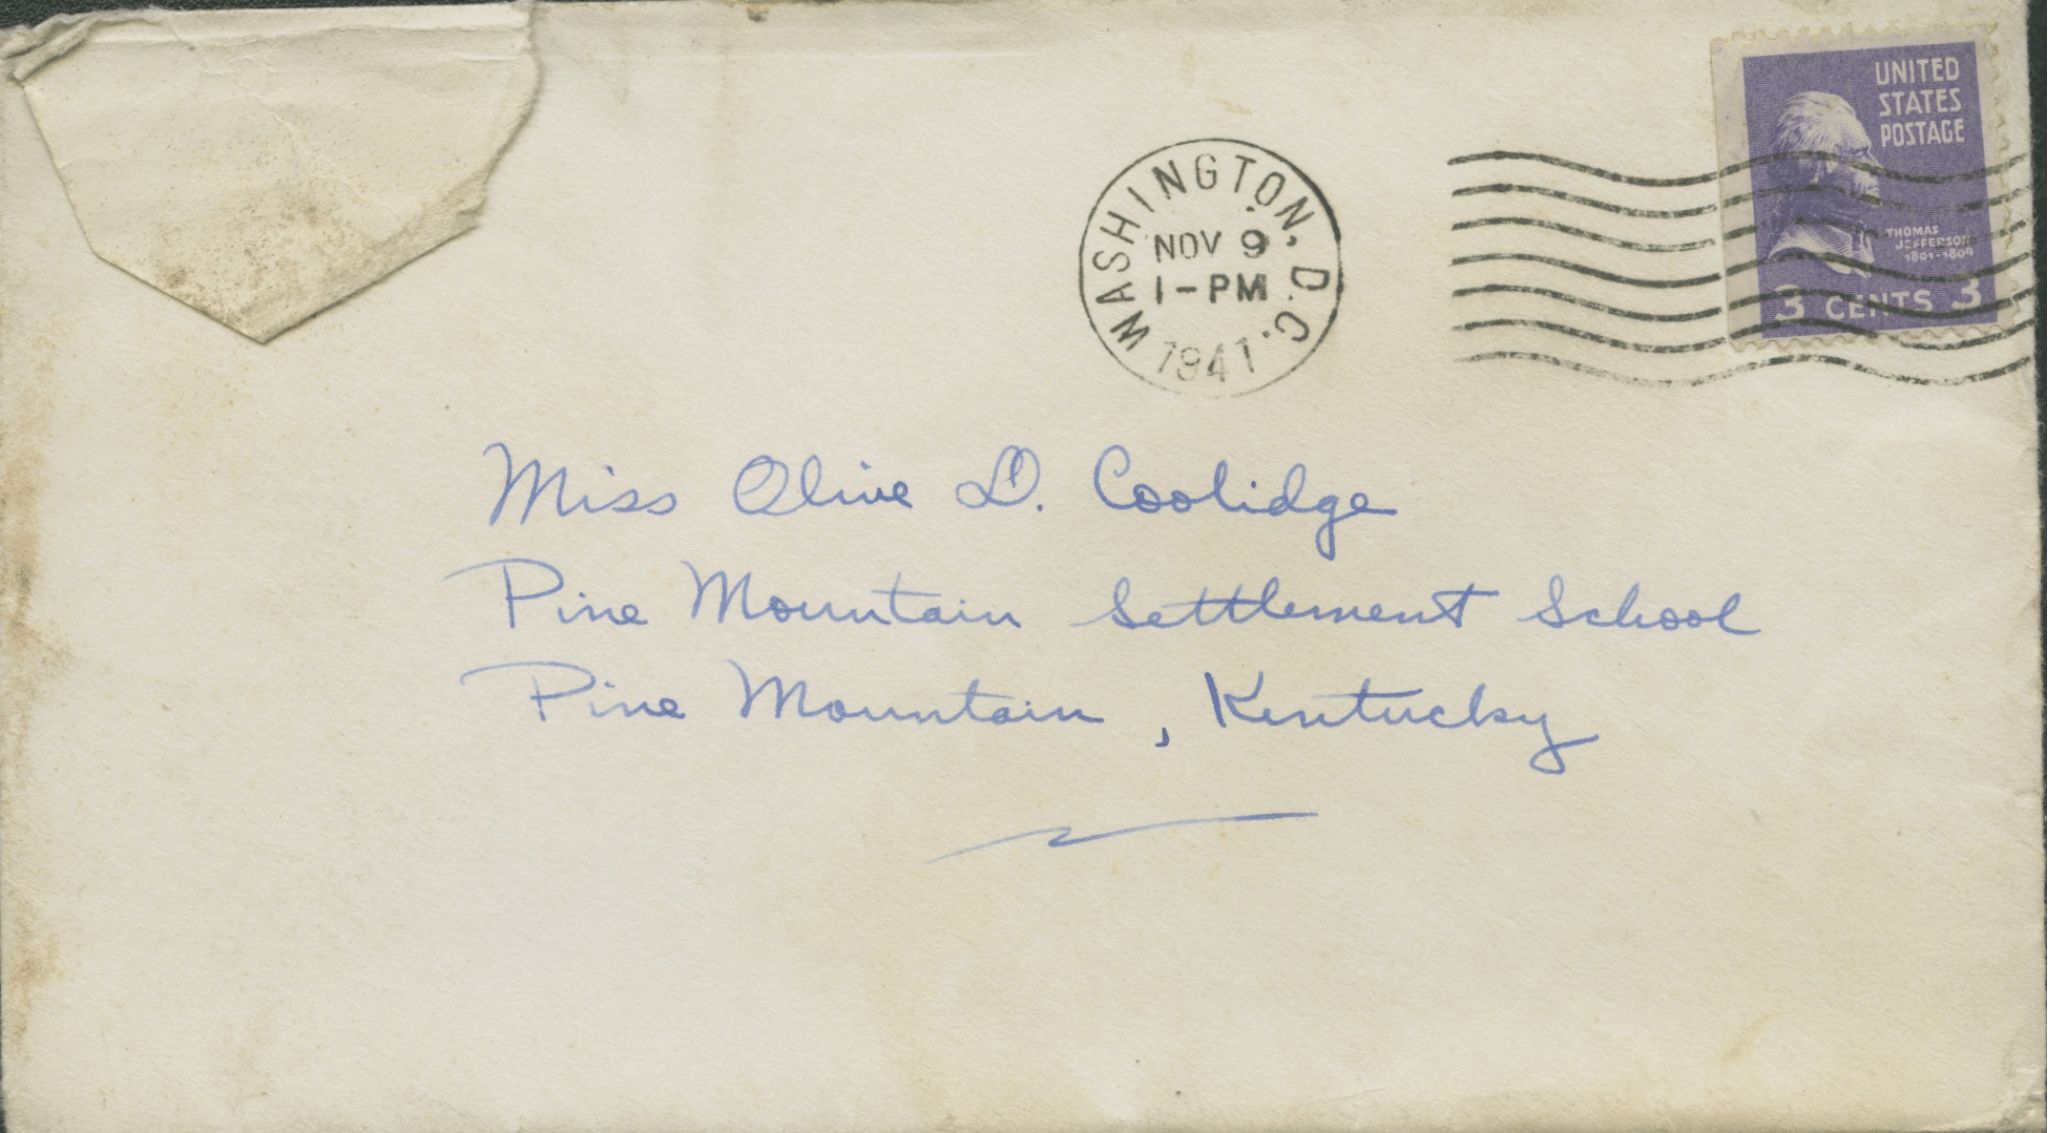 UNITED
STATES
POSTAGE
THOMAS
JEFFERSON
1801-1809
3 CENTS 3
WASHINGTON, D.C.
NOV 9
1-PM
1941
Miss Olive D. Coolidge
Pine Mountain Settlement School
Pine Mountain, Kentucky